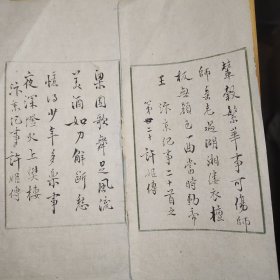 輦轂繁華事可傷師
師垂老過湖湘縷衣檀
板無顏色一曲當時動帝
王 汴京紀事二十首之
第二十 許姬傳
梁園歌舞足風流
美酒如刀解斷愁
憶得少年多樂事
夜深燈火上樊樓
汴京紀事 許姬傳